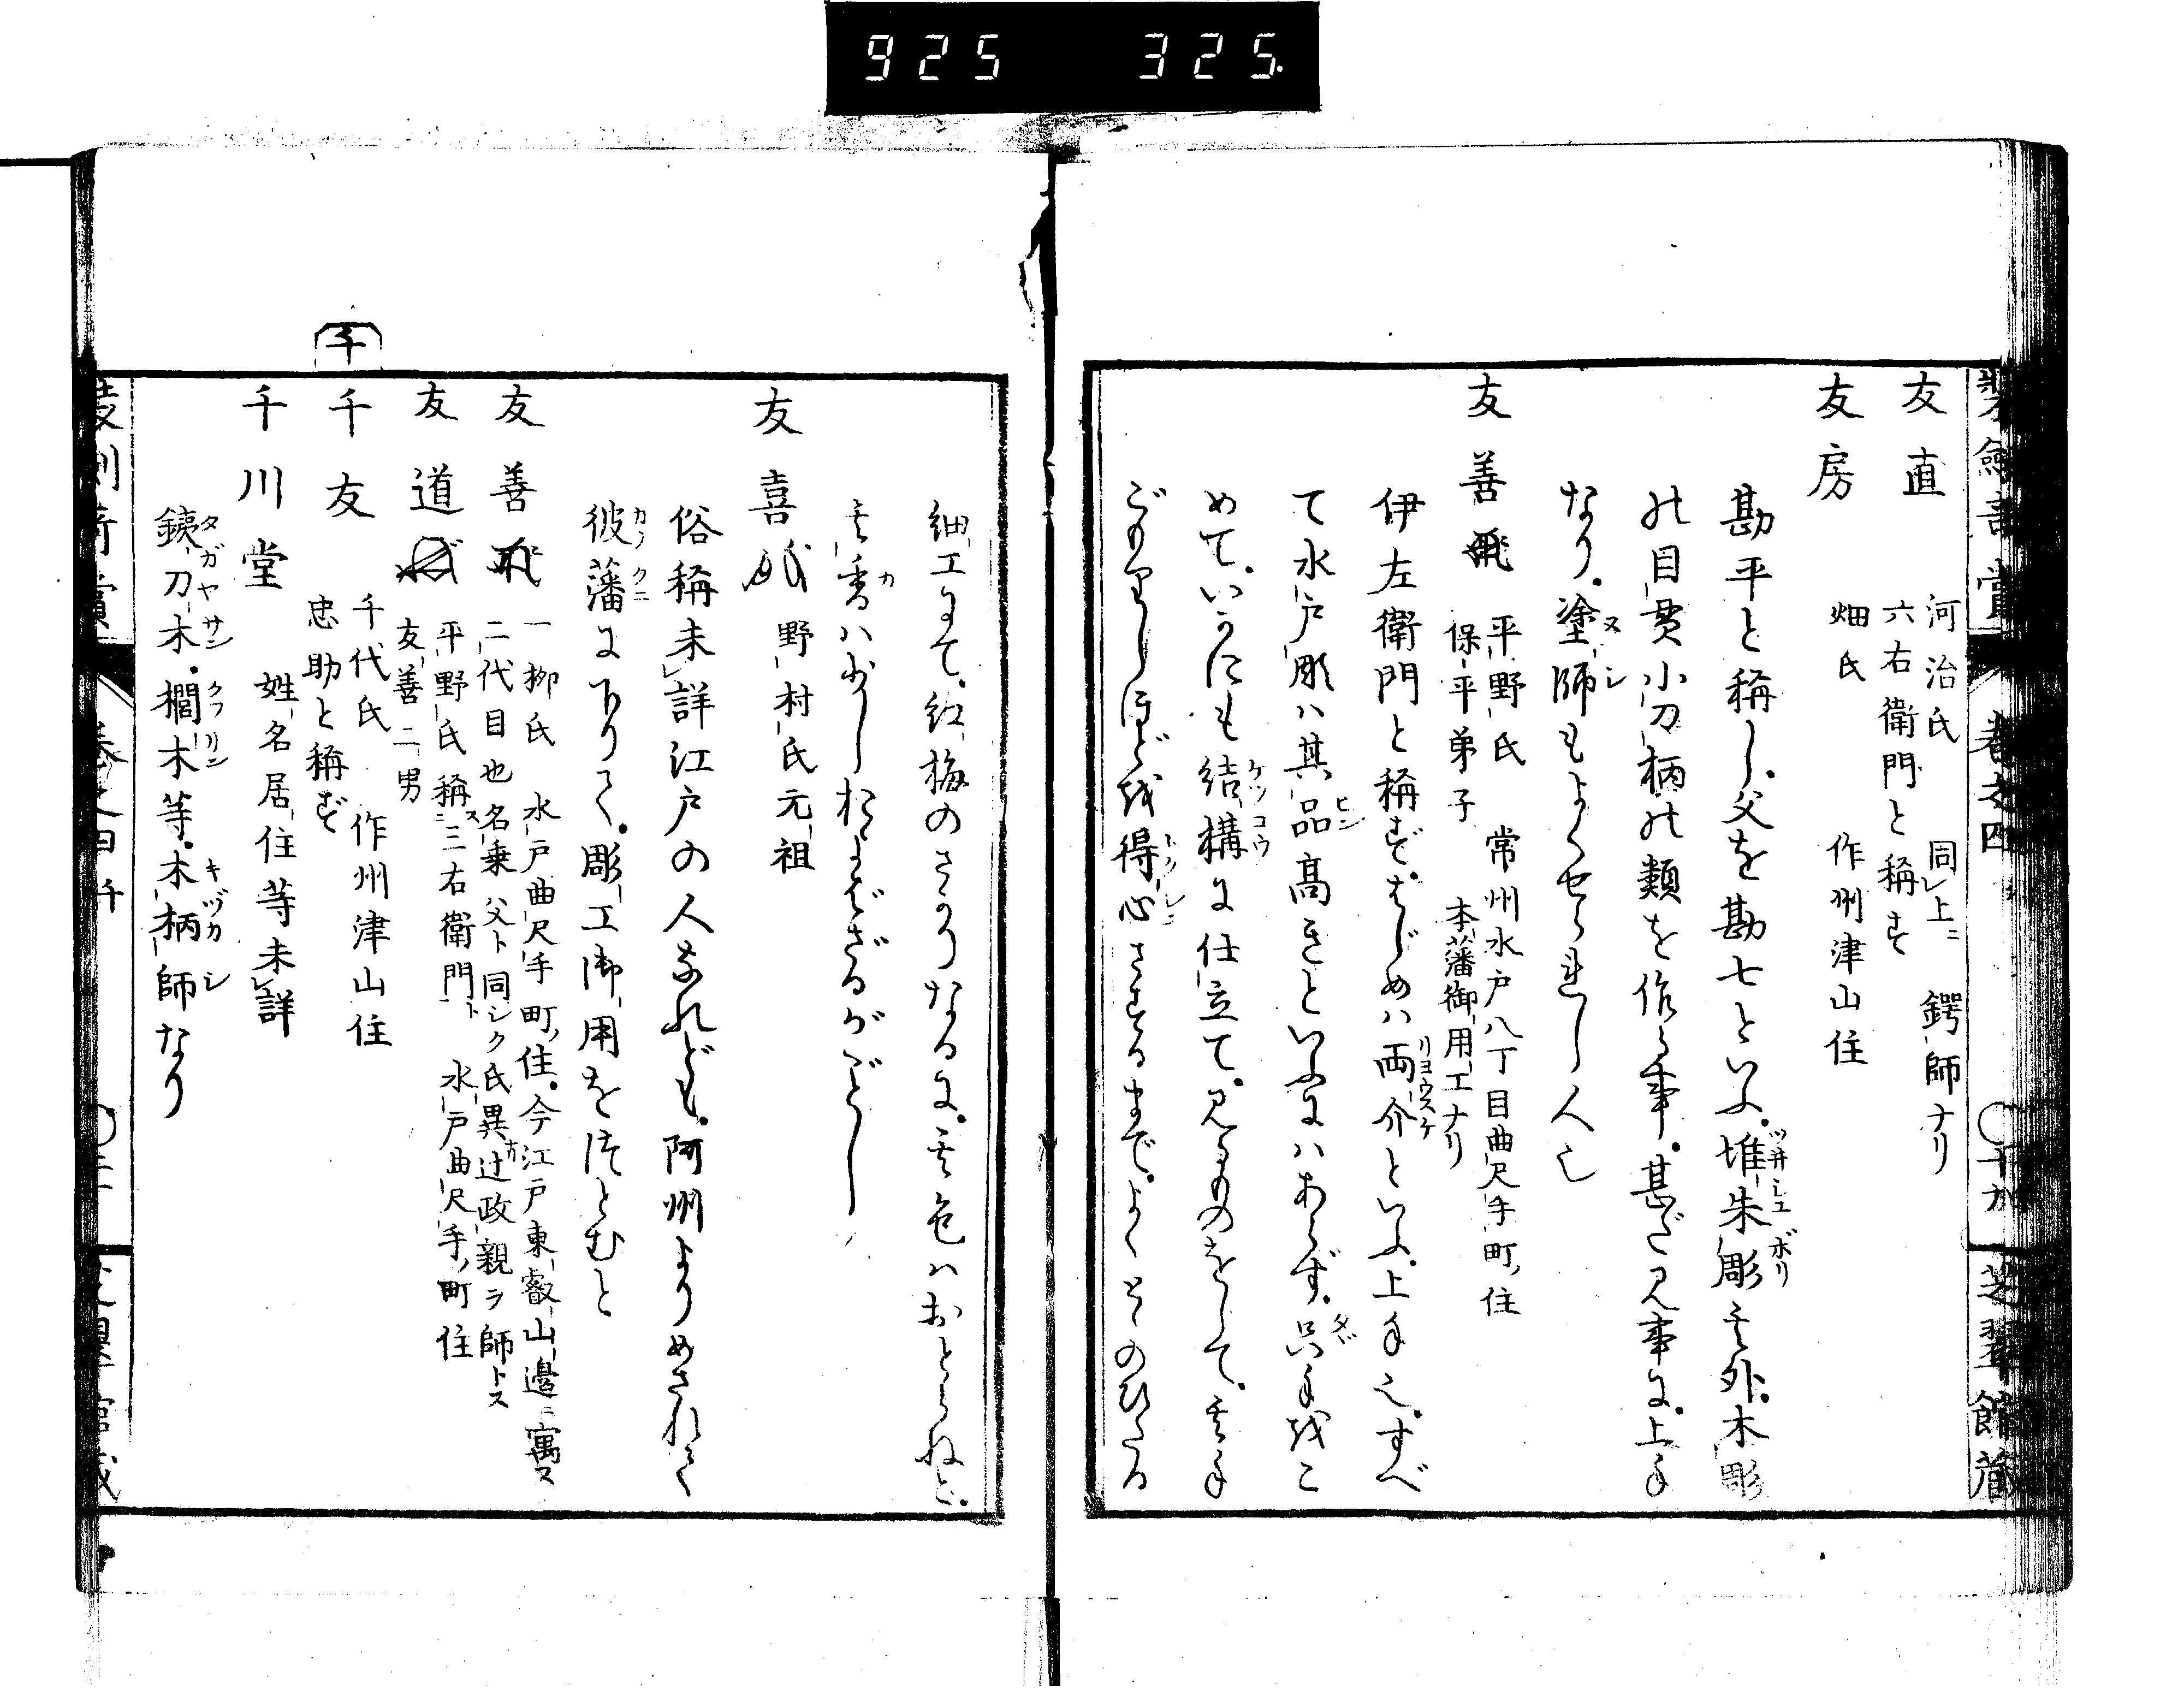 925 325.
装劔竒賞 巻之四 芝翠館蔵
友直 河治氏 同上ニ 鍔師ナリ
六右衛門と称す
友房 畑氏 作州津山住
勘平と稱し。父を勘七といふ。堆朱彫其外。木彫
の目貫小刀柄の類を作る事。甚だ見事に。上手
なり。塗師もよくせられし人也
友善 平野氏 常州水戸八丁目曲尺手町ノ住
保平弟子 本藩御用工ナリ
伊左衛門と稱ず。はじめハ両介といふ。上手也。すべ
て水戸彫ハ其品高きといふにハあらず。只手或こ
めて。いかにも結構に仕立て。見るものをして。其手
ごもりしほどを得心さするまで。よくとゝのひたる
細工にて。紅梅のさかりなるに。其色ハおとらねど。
其香ハ少しおよばざるがごとし
友喜 野村氏元祖
俗稱未詳江戸の人なれども。阿州よりめされて
彼藩に下りて。彫工御用をつとむと
友善 一柳氏 水戸曲尺手町ノ住。今江戸東叡山邊ニ寓ス
二代目也名乗ハ父ト同シク氏異ナリ辻政親ヲ師トス
友道 平野氏稱ス三右衛門ト 水戸曲尺手ノ町住
友善二男
千
千友 千代氏 作州津山住
忠助と稱ず
千川堂 姓名居住等未詳
銕刀木。櫚木等。木柄師なり